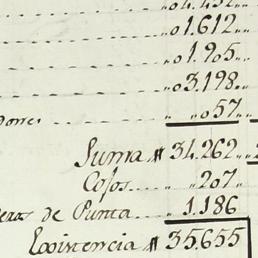 1.612
1.905
3.198
57
Suma # 34.262
Cosos 207
de Punta 1.186
Existencia # 35.655